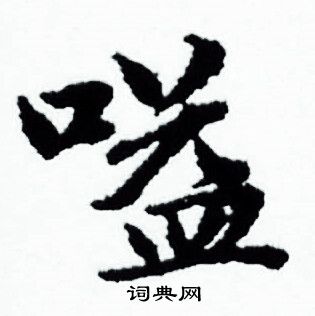 嗌
词典网